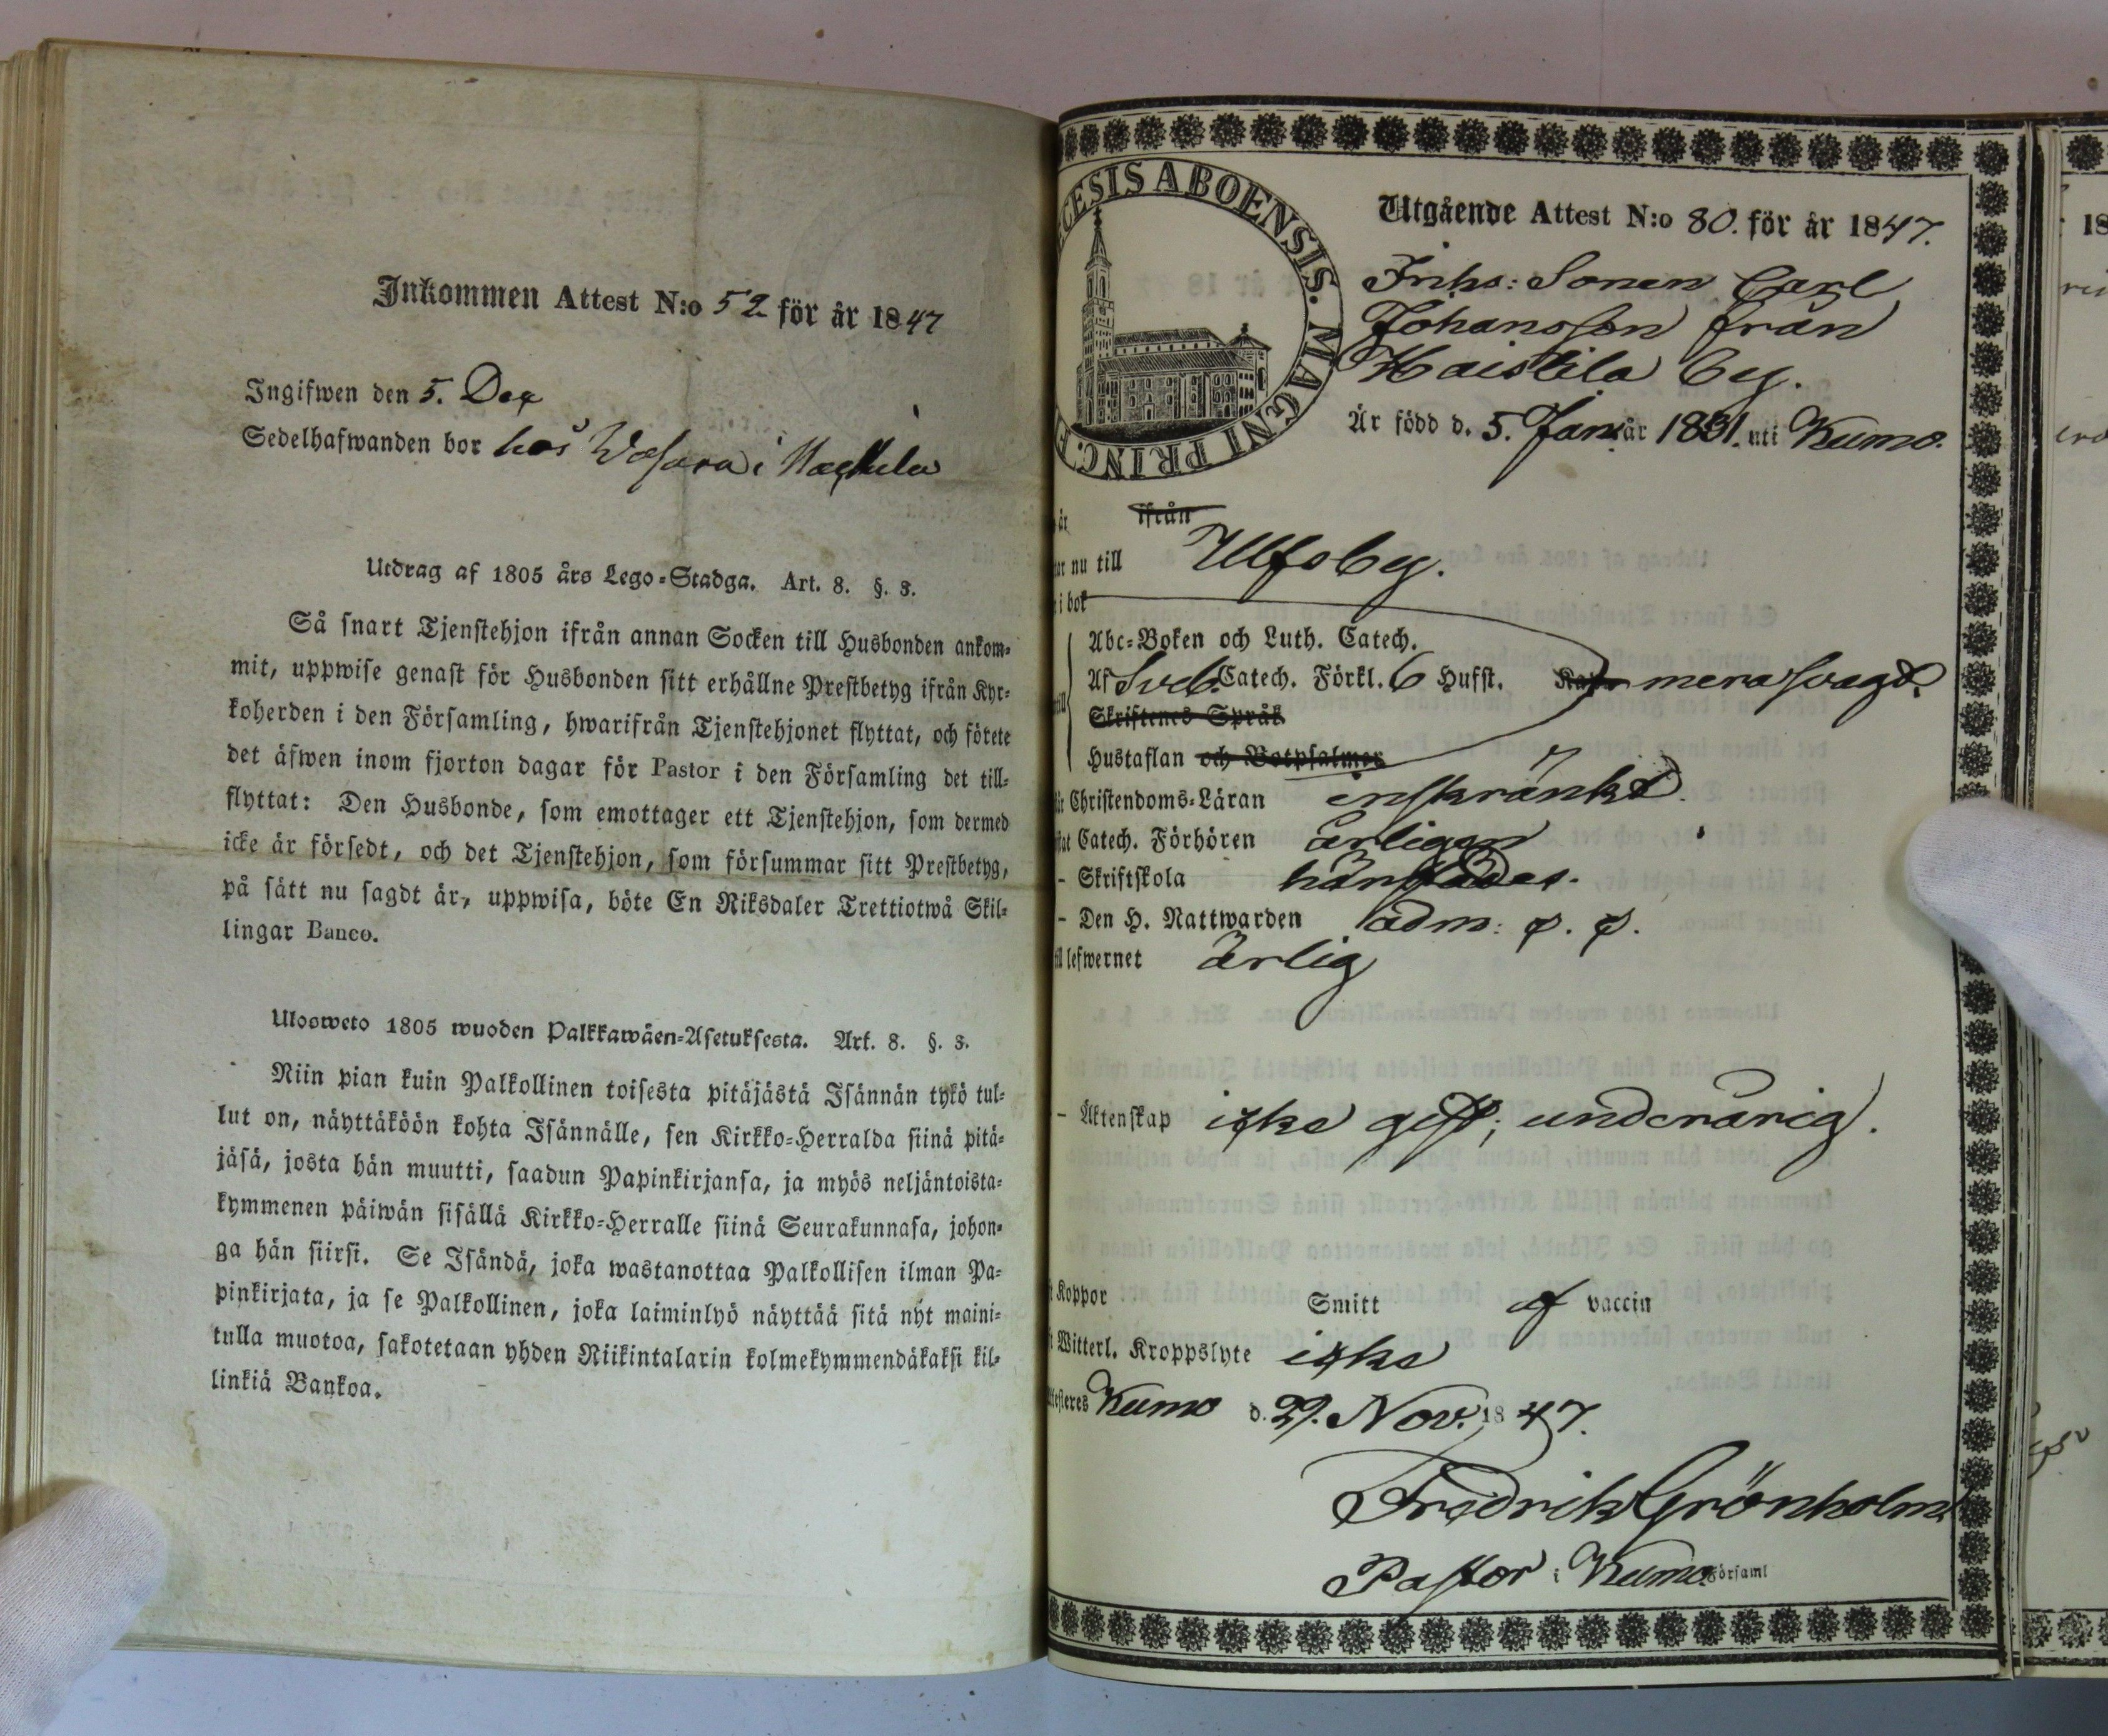 Inkommen Attest N:o 52 för år 1847
Ingifwen den 5. Dec
Sedelhafwanden bor hos Wasara i
Utdrag af 1805 års Lego-Stadga. Art. 8. §. 3.
Så snart Tjenstehjon ifrån annan Socken till Husbonden ankom-
mit, uppwise genast för Husbonden sitt erhållne Prestbetyg ifrån Kyr-
koherden i den Församling, hwarifrån Tjenstehjonet flyttat, och förete
det äfwen inom fjorton dagar för Pastor i den Församling det till-
flyttat: Den Husbonde, som emottager ett Tjenstehjon, som dermed
icke är försedt, och det Tjenstehjon, som försummar sitt Prestbetyg,
på sätt nu sagdt är, uppwisa, böte En Riksdaler Trettiotwå Skil-
lingar Banco.
Ulosweto 1805 wuoden Palkkawäen-Asetuksesta. Art. 8. §. 3.
Niin pian kuin Palkollinen toisesta pitäjästä Isännän tykö tul-
lut on, näyttäköön kohta Isännälle, sen Kirkko-Herralda siinä pitä-
jäsä, josta hän muutti, saadun Papinkirjansa, ja myös neljäntoista-
kymmenen päiwän sisällä Kirkko-Herralle siinä Seurakunnasa, johon-
ga hän siirsi. Se Isändä, joka wastanottaa Palkollisen ilman Pa-
pinkirjata, ja se Palkollinen, joka laiminlyö näyttää sitä nyt maini-
tulla muotoa, sakotetaan yhden Riikintalarin kolmekymmendäkaksi kil-
linkiä Bankoa.
CESIS ABOENSIS. MAGNI PRINC. F
Utgående Attest N:o 80. för år 1847.
Inhs: Sonen Carl
Johansson från
Haistila by.
Är född d. 5. Jan. år 1831. uti Kumo.
är ifrån
nu till Ulfsby.
i bok
Abc-Boken och Luth. Catech.
Af Sveb. Catech. Förkl. 6 Hufst. mera svagt.
Skriftenes Språk
Hustaflan och Botpsalmer
Christendoms-Läran inskränkt.
Catech. Förhören årligen
- Skriftskola
- Den H. Nattwarden adm: p. p.
lefwernet ärlig
- Äktenskap icke gift; underårig.
Koppor Smitt af vaccin
Witterl. Kroppslyte icke
Kumo d. 29. Nov. 1847.
Fredrik Grönholm.
Pastor i Kumo Församl